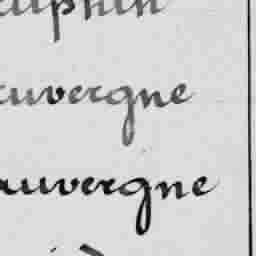 auphin
auvergne
auvergne